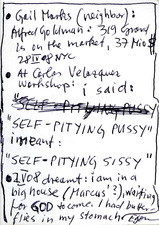 • Gail Marks (neighbor):
Alfred Goldman: 319 Grand
is on the market, 37 Mio $
28 IV 08 NYC
• At Carlos Velazquez
Workshop: i said:
"SELF-PITYING PUSSY
"SELF-PITYING PUSSY"
i meant:
"SELF-PITYING SISSY"
• IV08 dream: i am in a
big house (Marcus'?), waiting
for GOD to come. i had butter
flies in my stomach